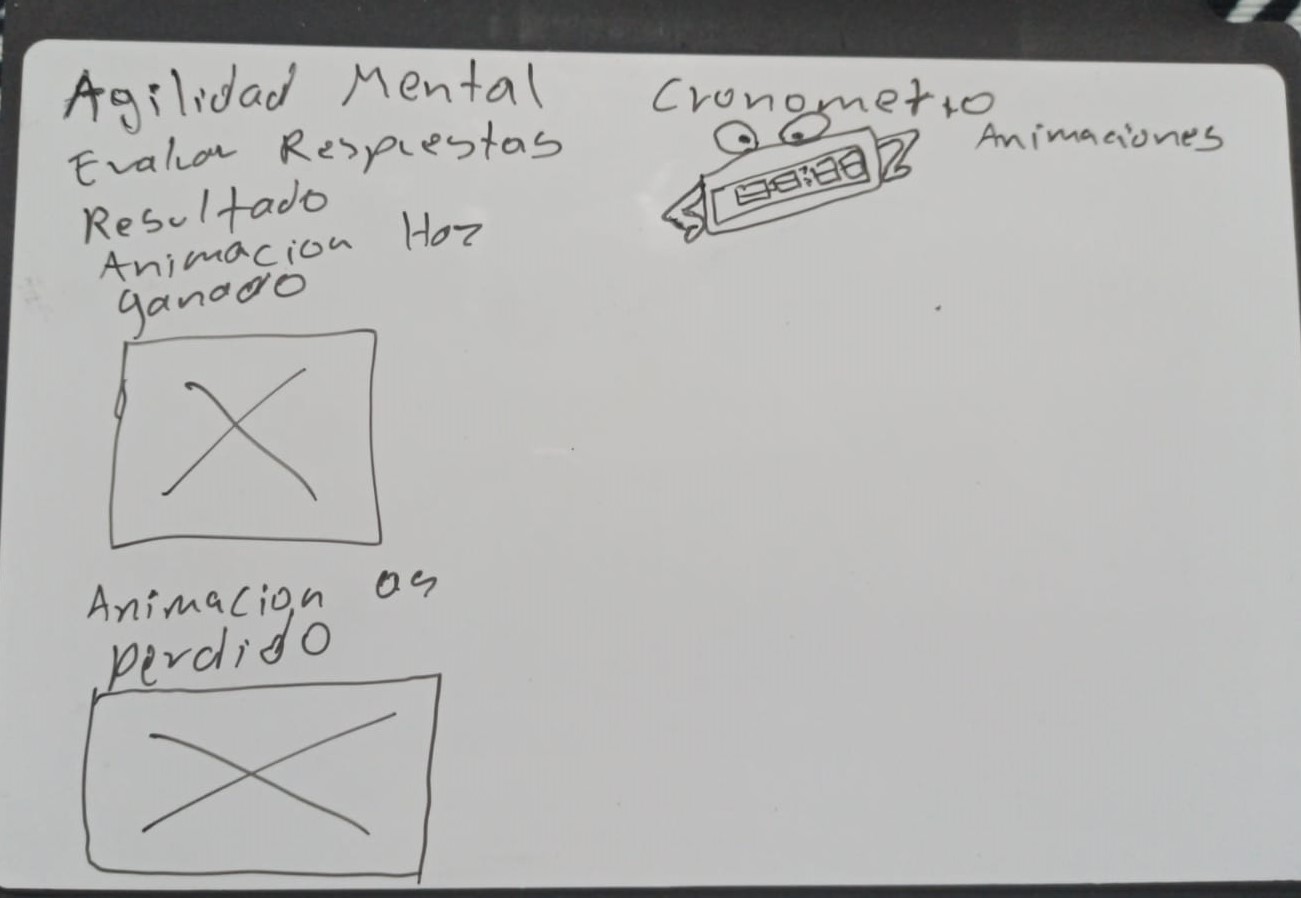 Agilidad Mental
Evaluar Respuestas
Resultado
Animacion Haz
ganado
Animacion as
perdido
Cronometro
Animaciones
88:88